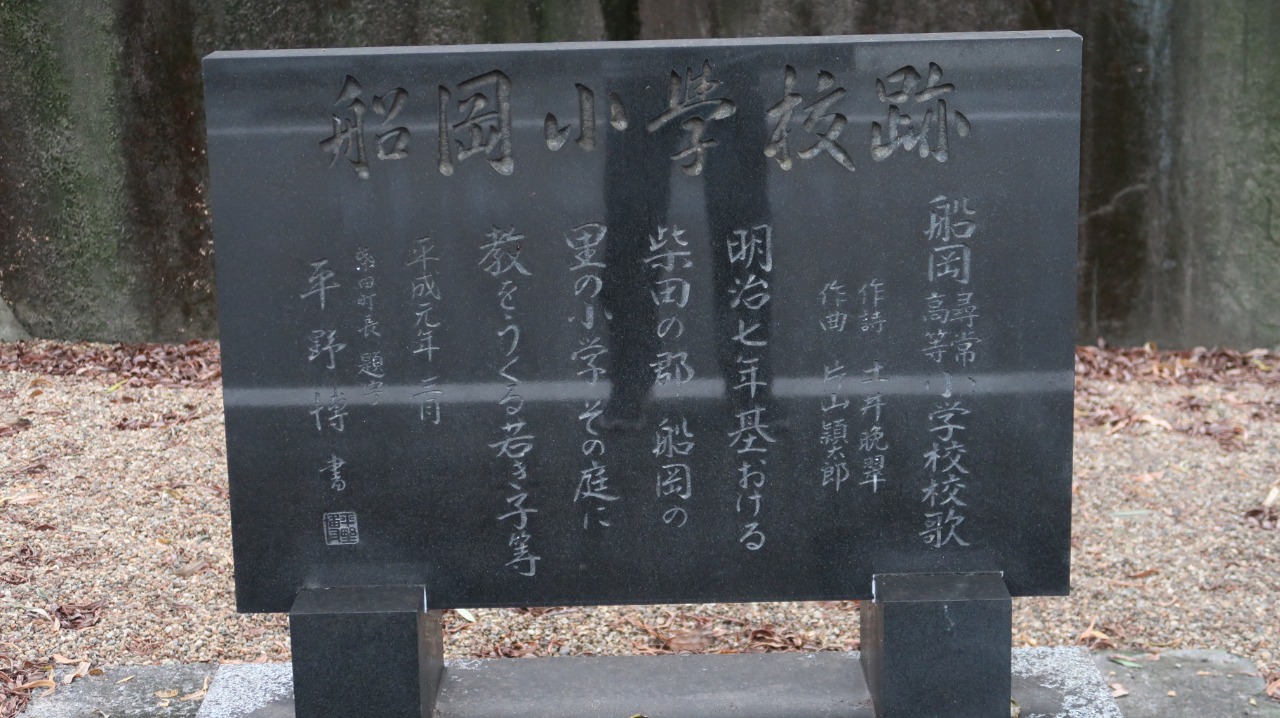 船岡小学校跡
船岡尋常高等小学校校歌
作詩 土井晩翠
作曲 片山穎太郎
明治七年基おける
柴田の郡 船岡の
里の小学 その庭に
教をうくる若き子等
平成元年 三月
柴田町長 題字
平野博 書